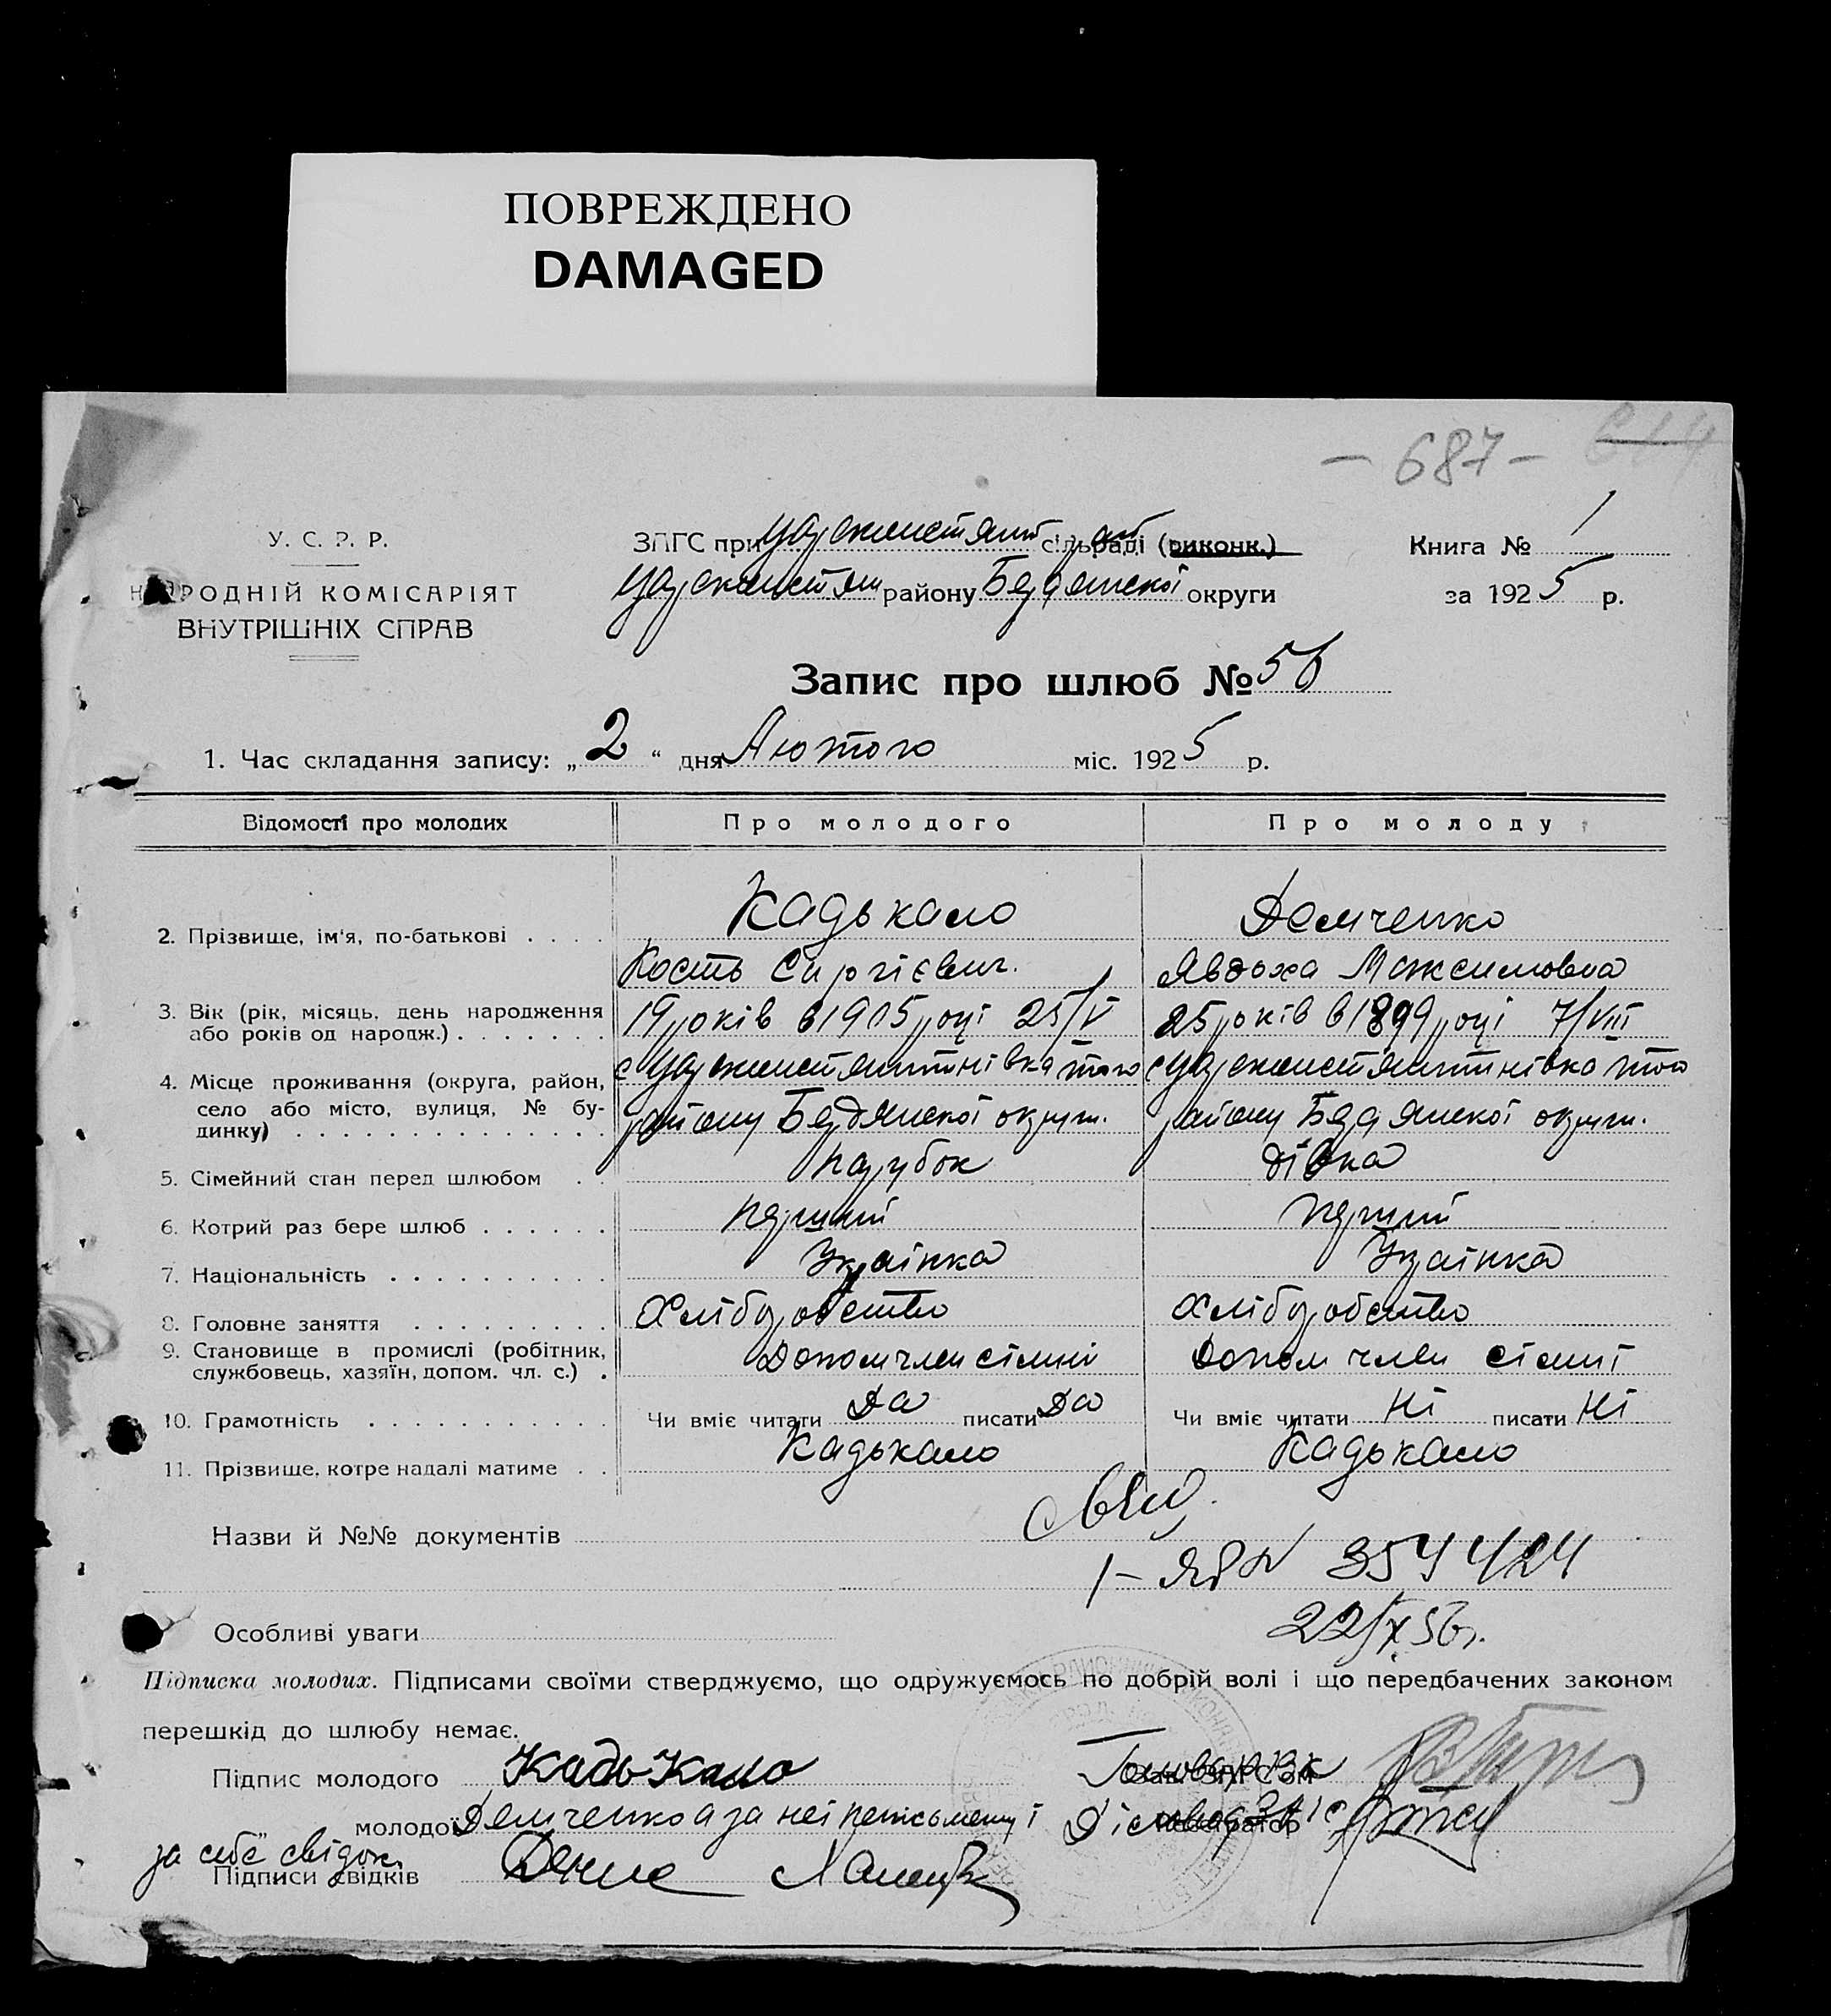 ПОВРЕЖДЕНО
DAMAGED
– 687 –
У. С. Р. Р.
НАРОДНІЙ КОМІСАРІЯТ
ВНУТРІШНІХ СПРАВ
ЗПГС при сільраді (виконк.)
району Бердянської округи
Книга № 1
за 1925 р.
Запис про шлюб № 56
1. Час складання запису: „ 2 “ дня Лютого міс. 1925 р.
Відомості про молодих Про молодого Про молоду
2. Прізвище, ім'я, по-батькові . . . . Кадькало Демченко
Кость Сиргієвич. Явдоха Максимовна
3. Вік (рік, місяць, день народження
або років од народж.) . . . . . . . 19 років в 1905 році 25/V 25 років в 1899 році 7/VIII
4. Місце проживання (округа, район,
село або місто, вулиця, № бу-
динку) . . . . . . . . . . . . . . того
району Бердянської округи. того
району Бердянської округи.
5. Сімейний стан перед шлюбом . . парубок дівка
6. Котрий раз бере шлюб . . . . . . перший перший
7. Національність . . . . . . . . . . Українка Українка
8. Головне заняття . . . . . . . . . Хліборобство Хліборобство
9. Становище в промислі (робітник,
службовець, хазяїн, допом. чл. с.) . Допом член сімьї Допом член сімьї
10. Грамотність . . . . . . . . . . . Чи вміє читати Да писати Да Чи вміє читати Ні писати Ні
11. Прізвище, котре надалі матиме . . Кадькало Кадькало
Назви й №№ документів
354424
22/X 56г.
Особливі уваги
Підписка молодих. Підписами своїми стверджуємо, що одружуємось по добрій волі і що передбачених законом
перешкід до шлюбу немає.
Підпис молодого Кадькало
Зав. ЗПГС'ом
молодої Демченко а за неї неписьменну і
за себе свідок
Підписи свідків